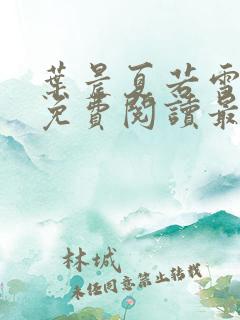 葉晨夏若雪
免費閱讀最
林城
未經同意禁止轉載